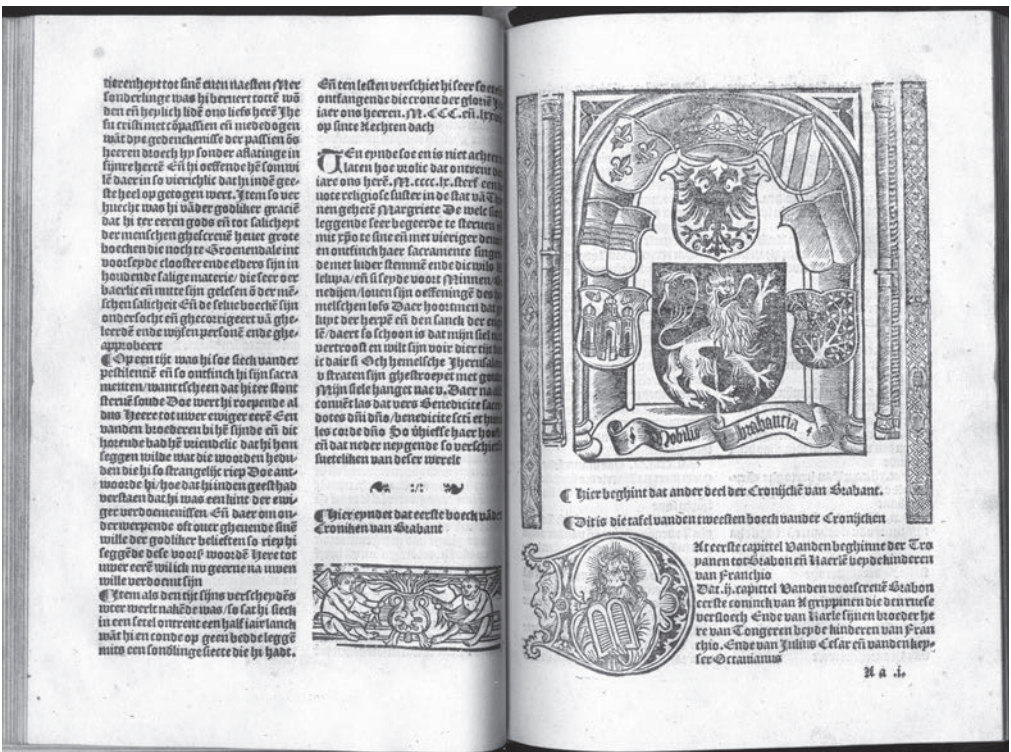 tierenheyt tot sinē euen naesten Mer
sonderlinge was hi beruert tottē wō
den eñ heylich lidē ons liefs herē Ihe
su cristi met cōpassien eñ mededogen
wāt dye gedenckenisse der passien ōs
heeren droech hy sonder aflatinge in
sijnre hertē Eñ hi oeffende hē somwi
lē daer in so vierichlic dat hi indē gee-
ste heel op getogen wert. Item so ver
huecht was hi vāder godliker graciē
dat hi ter eeren gods eñ tot salicheyt
der menschen ghescreuē heuet grote
boecken die noch te Groenendale int
voorseyde clooster ende elders sijn in
houdende salige materie/ die seer oer
baerlic eñ nutte sijn gelesen ō der mē-
schen salicheit Eñ de selue boeckē sijn
ondersocht eñ ghecorrigeert vā ghe-
leerdē ende wijsen personē ende ghe-
approbeert
¶ Op een tijt was hi soe sieck vander
pestilentiē eñ so ontfinck hi sijn sacra
menten/ want tscheen dat hi ter stont
steruē soude Doe wert hi roepende al
dus Heere tot uwer ewiger eerē Een
vanden broederen bi hē sijnde eñ dit
horende bad hē vriendelic dat hi hem
seggen wilde wat die woorden bedu-
den die hi so strangelijc riep Doe ant-
woorde hi/ hoe dat hi inden geest had
verstaen dat hi was een kint der ewi-
ger verdoemenissen Eñ daer om on-
der werpende oft ouer gheuende sinē
wille der godliker belieften so riep hi
seggēde dese voors woordē Here tot
uwer eerē wil ick nv geerne na uwen
wille verdoemt sijn
¶ Item als den tijt sijns verscheydēs
wter werlt nakēde was/ so sat hi sieck
in een setel ontrent een half iair lanck
wāt hi en conde op geen bedde leggē
mits een sonōlinge siecte die hi hadt.
Eñ ten lesten verschiet hi seer so
ontfangende die crone der gloriē
iaer ons heeren. M.CCC. eñ.
op sinte Aechten dach
TEn eynde soe en is niet achter
laten hoe vrolic dat ontrent
iare ons herē. M.cccc.lx. sterf een
uote religiose suster in de stat vā
nen geheetē Margriete De welc
leggende seer begeerde te steruen
mit xp̄o te sine eñ met vieriger
en ontfinck haer sacramente
de met luder stemmē ende dicwils
leluya/ eñ si seyde voort Minnen/
nedijen/ louen sijn oeffeningē des
melschen lofs Daer hoortmen dat
luyt der herpē eñ den sanck der
lē/ daert so schoon is dat mijn siel
vertroost en wilt sijn voir dier tijt
it dair si Och hemelsche Iherusalem
v straten sijn ghestroeyet met
Mijn siele hanget nae v. Daer na
conuēt las dat vers Benedicite
dotes dn̄i dn̄o/ benedicite sc̄ti et
les corde dn̄o So
eñ dat neder neygende so verschiet
suetelikē van deser werelt
¶ Hier eyndet dat eerste boeck vāder
Croniken van Brabant
Nobilis brabancia
¶ Hier beghint dat ander deel der Cronijckē van Brabant.
¶ Dit is die tafel vanden tweesten boeck vander Cronijcken
DAt eerste capittel Vanden beghinne der Tro
yanen tot Brabon eñ Kaerlē beyde kinderen
van Franchio
Dat .ij. capittel Vanden voorscreuē Brabon
eerste coninck van Agrippinen die den ruese
versloech Ende van Karle sijnen broeder he
re van Tongeren beyde kinderen van Fran
chio. Ende van Julius Cesar eñ vanden key-
ser Octauianus
A a .i.